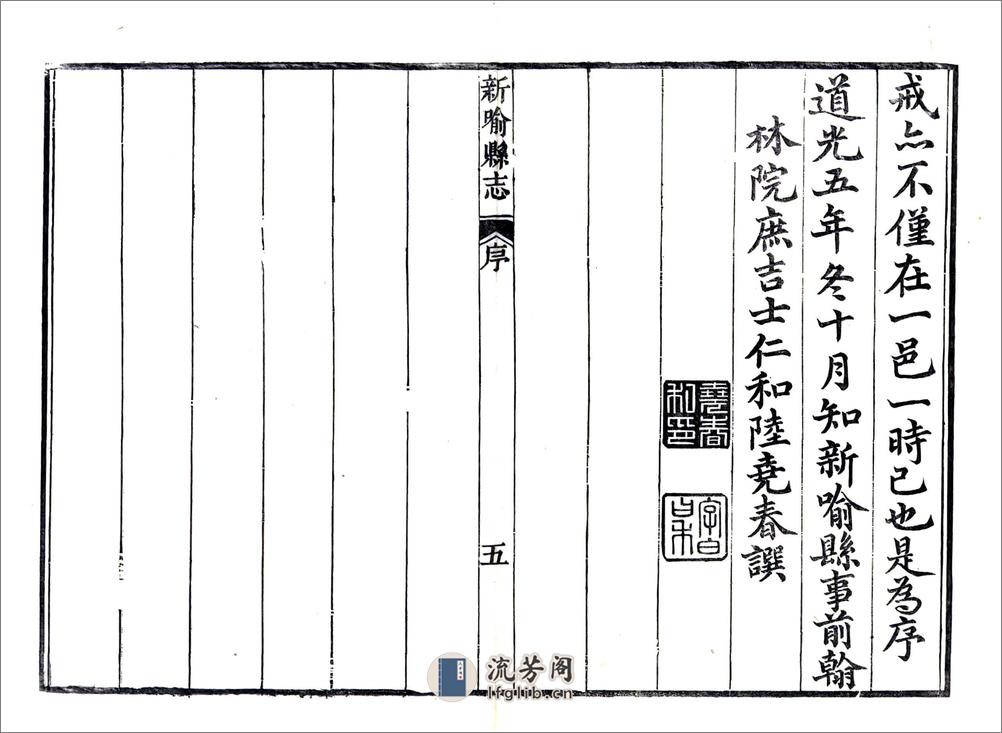 戒亦不僅在一邑一時已也是為序
道光五年冬十月知新喻縣事前翰
林院庶吉士仁和陸堯春譔
堯春私印
字曰
新喻縣志
序
五
流芳阁
lfglib.cn